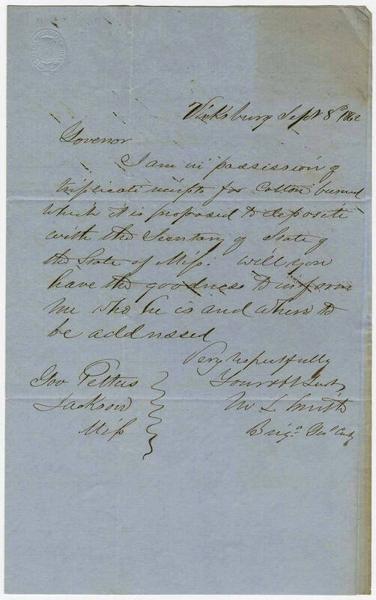 Vicksburg Sept 8th 1862
Govenor
I am in possission of
triplicate receipts for Cotton burned
which it is proposed to deposite
with the Secretary of State of
the State of Miss. Will you
have the goodness to inform
me who he is and where to
be addressed
Very respectfully
Your obt Svt
M L Smith
Brigr Genl Comdg
Gov Pettus
Jackson
Miss